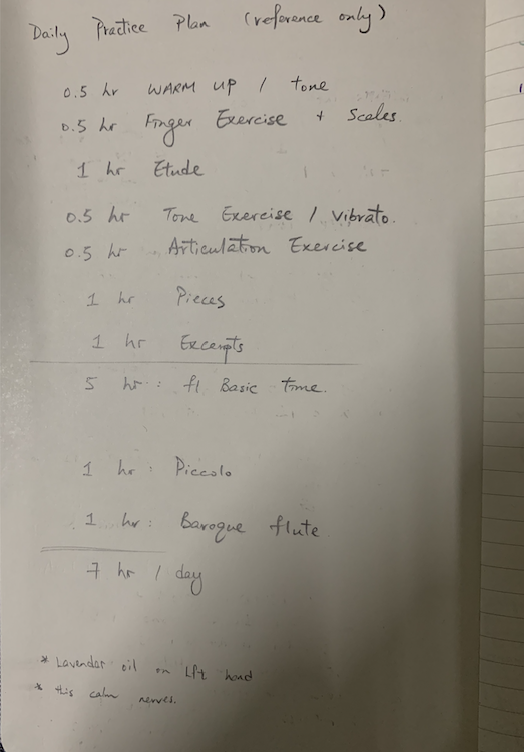 Daily Practice Plan (reference only)
0.5 hr WARM UP / tone
0.5 hr Finger Exercise + Scales.
1 hr Etude
0.5 hr Tone Exercise / Vibrato.
0.5 hr Articulation Exercise
1 hr Pieces
1 hr Excerpts
5 hr : fl Basic time.
1 hr : Piccolo
1 hr : Baroque flute
7 hr / day
* Lavendar oil on hand
* this calm nerves.